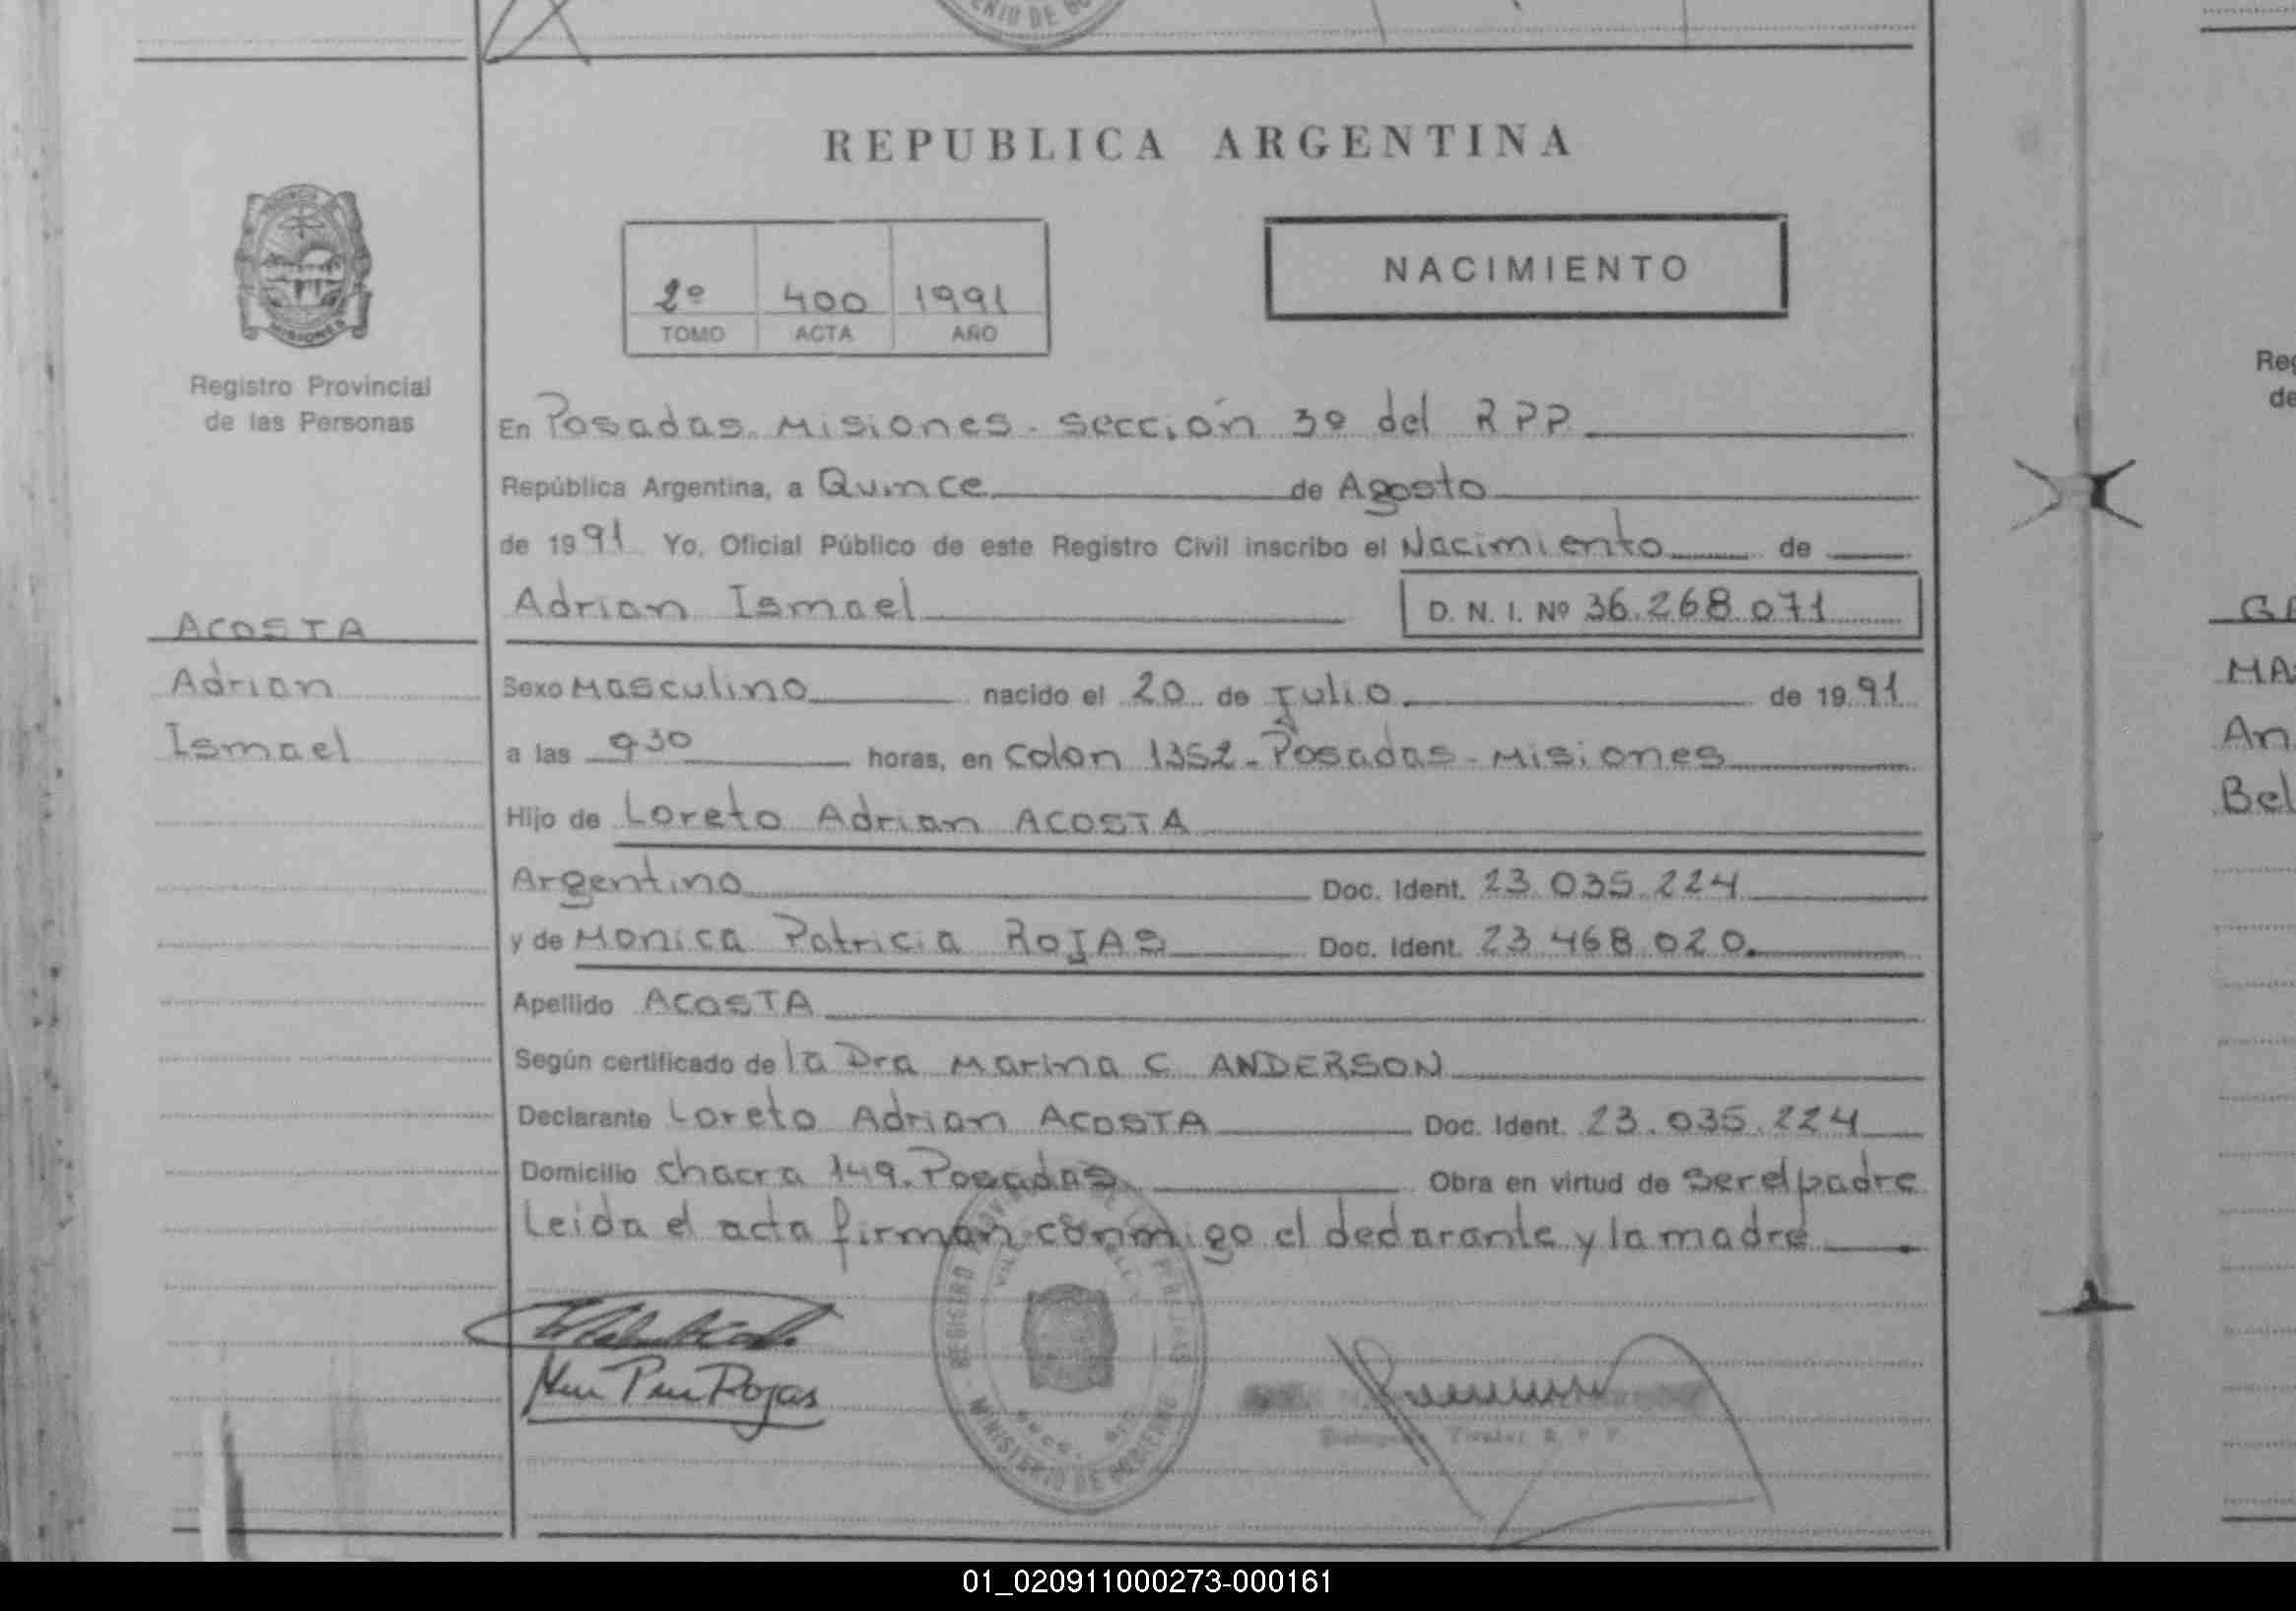 NIO DE GO
REPUBLICA ARGENTINA
MISIONES
Registro Provincial
de las Personas
2º 400 1991
TOMO ACTA AÑO
NACIMIENTO
En Posadas. Misiones. sección 3º del RPP
República Argentina, a Quince de Agosto
de 1991 Yo, Oficial Público de este Registro Civil inscribo el Nacimiento de
Adrian Ismael D. N. I. Nº 36.268.071
ACOSTA
Adrian
Ismael
Sexo Masculino nacido el 20 de Julio de 1991
a las 930 horas, en Colon 1352-Posadas-Misiones
Hijo de Loreto Adrian ACOSTA
Argentino Doc. Ident. 23.035.224
y de Monica Patricia ROJAS Doc. Ident. 23.468.020.
Apellido ACOSTA
Según certificado de la Dra Marina C ANDERSON
Declarante Loreto Adrian ACOSTA Doc. Ident. 23.035.224
Domicilio chacra 149. Posadas Obra en virtud de ser el padre
Leida el acta firman conmigo el declarante y la madre
REGISTRO
MINISTERIO DE GOBIERNO
Rojas
Titular R. P. P.
Reg
de
GA
MA
An
Bel
01_020911000273-000161